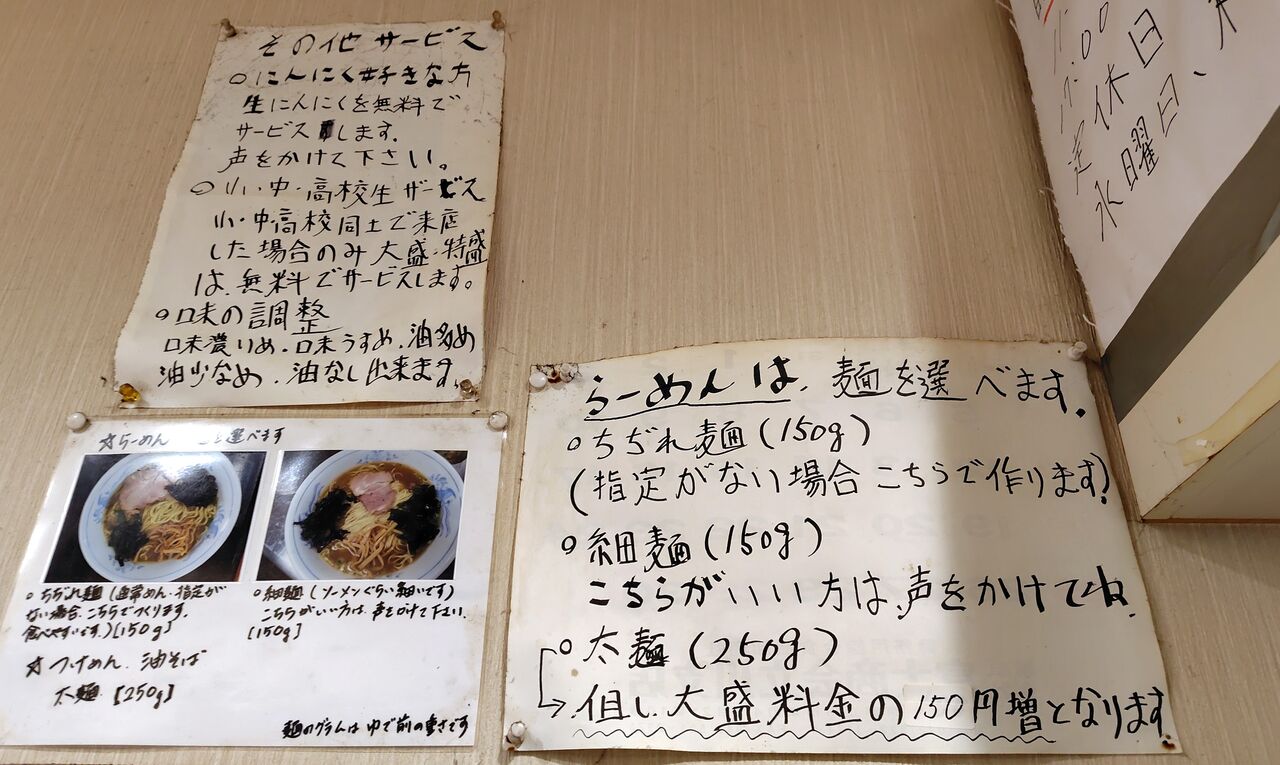 その他サービス
○にんにく好きな方
生にんにくを無料で
サービスします.
声をかけて下さい。
○小・中・高校生サービス
小・中・高校同士で来店
した場合のみ大盛・特盛
は、無料でサービスします。
○味の調整
味濃いめ.味うすめ.油多め
油少なめ.油なし出来ます.
☆らーめん 選べます
○ちぢれ麺(通常めん.指定が
ない場合、こちらでつくります.
食べやすいです.)[150g]
○細麺(ソーメンぐらい細いです)
こちらがいい方は、声をかけて下さい.
[150g]
☆つけめん.油そば
太麺.[250g]
麺のグラムはゆで前の重さです
らーめんは、麺を選べます.
○ちぢれ麺(150g)
(指定がない場合こちらで作ります)
○細麺(150g)
こちらがいい方は、声をかけてね.
○太麺(250g)
但し、大盛料金の150円増となります.
17:00
定休日
水曜日、